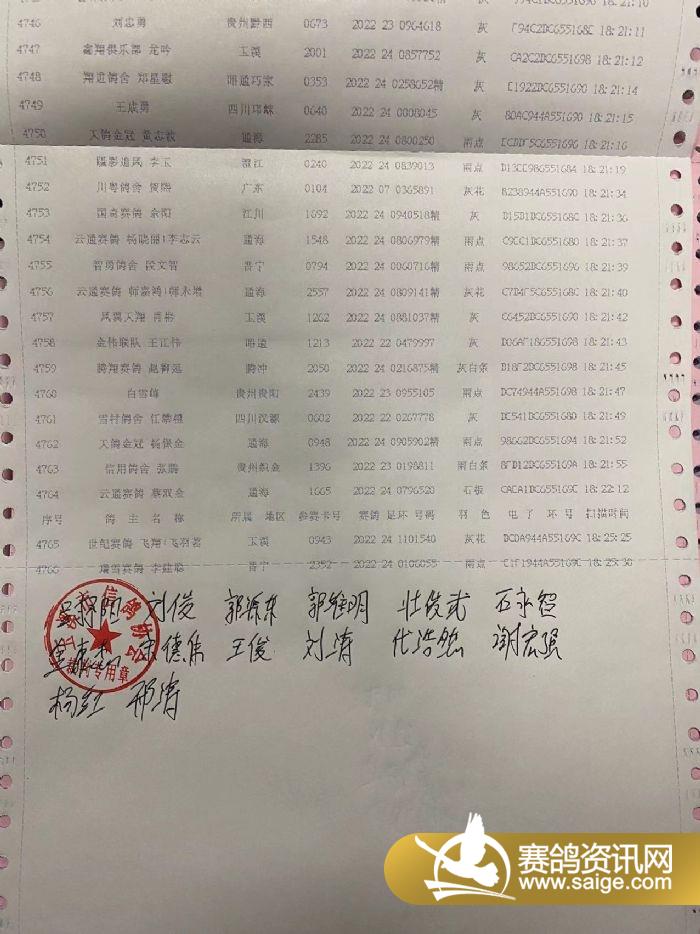 4746 刘忠勇 贵州黔西 0673 2022 23 0964618 灰 F94C2DC655168C 18:21:11
4747 鑫翔俱乐部 龙吟 玉溪 2001 2022 24 0857752 灰 CA2C2DC6551698 18:21:12
4748 翔进鸽舍 郑星懿 昭通巧家 0353 2022 24 0258652精 灰 E1922DC6551690 18:21:14
4749 王成勇 四川邛崃 0640 2022 24 0008045 灰 80AC944A551690 18:21:15
4750 天鸽金冠 黄志被 通海 2285 2022 24 0800250 雨点 18:21:16
4751 蹑影追风 李玉 澄江 0240 2022 24 0839013 雨点 D13CC986551684 18:21:19
4752 川粤鸽舍 贺熙 广东 0104 2022 07 0365891 灰花 8238944A551690 18:21:34
4753 国亮赛鸽 余刚 江川 1692 2022 24 0940518精 灰 D15D1DC655168C 18:21:36
4754 云通赛鸽 杨晓丽:李志云 通海 1548 2022 24 0806979精 雨点 C9CC1DC6551680 18:21:37
4755 智勇鸽舍 段文智 晋宁 0794 2022 24 0060716精 雨点 98652DC6551696 18:21:39
4756 云通赛鸽 师嘉鸿:师永增 通海 2557 2022 24 0809141精 灰花 C7D4F5C655168C 18:21:40
4757 凤翼天翔 肖彬 玉溪 1262 2022 24 0881037精 灰 C6452DC6551690 18:21:42
4758 金伟联队 王正伟 昭通 1213 2022 22 0479997 灰 D06AF186551690 18:21:43
4759 腾翔赛鸽 赵御延 腾冲 2050 2022 24 0216875精 灰白条 D18F2DC6551680 18:21:45
4760 白雪峰 贵州贵阳 2439 2022 23 0955105 雨点 DC74944A551690 18:21:47
4761 雪村鸽舍 任崇程 四川汉源 0602 2022 22 0267778 灰 DC541DC6551680 18:21:49
4762 天鸽金冠 杨保金 通海 0948 2022 24 0905902精 雨点 98662DC6551694 18:21:52
4763 信用鸽舍 张鹏 贵州织金 1396 2022 23 0198811 雨白条 8FD12DC655169A 18:21:55
4764 云通赛鸽 蔡双金 通海 1665 2022 24 0796520 石板 CACA1DC655169C 18:22:12
序号 鸽 主 名 称 所属 地区 参赛卡号 赛鸽 足环 号码 羽 色 电 子 环 号 扫描时间
4765 世纪赛鸽 飞翔:飞羽茗 玉溪 0943 2022 24 1101540 灰花 DCDA944A55169C 18:25:25
4766 瑞雪赛鸽 李桂聪 晋宁 2352 2022 24 0106055 雨点 C1F1944A55169C 18:25:30
刘俊 郭源东 郭维明 壮俊武 石永智
宋德伟 王俊 刘涛 代浩然 谢宏强
杨红 邢涛
信鸽协会
裁判专用章
赛鸽资讯网
www.saige.com